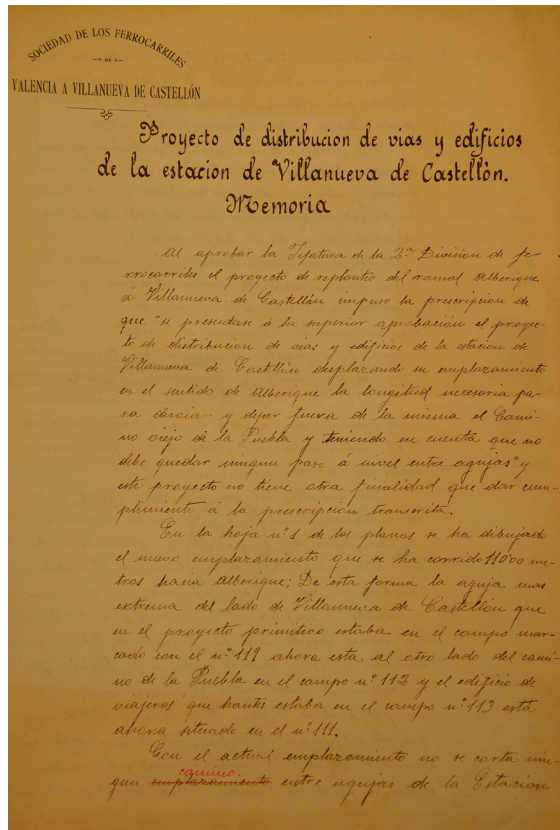 SOCIEDAD DE LOS FERROCARRILES
DE
VALENCIA A VILLANUEVA DE CASTELLÓN
Proyecto de distribucion de vias y edificios
de la estacion de Villanueva de Castellón.
Memoria
Al aprobar la Jefatura de la 2.ª Division de fe-
rrocarriles el proyecto de replanteo del ramal Alberique
á Villanueva de Castellón impuso la prescripcion de
que "se presentase á la superior aprobación el proyec-
to de distribucion de vias y edificios de la estacion de
Villanueva de Castellón desplazando su emplazamiento
en el sentido de Alberique la longitud necesaria pa-
ra desviar y dejar fuera de la misma el Cami-
no viejo de la Puebla y teniendo en cuenta que no
debe quedar ningun paso á nivel entre agujas" y
este proyecto no tiene otra finalidad que dar cum-
plimiento á la prescripción transcrita.
En la hoja nº 1 de los planos se ha dibujado
el nuevo emplazamiento que se ha corrido 110'00 me-
tros hacia Alberique; De esta forma la aguja mas
extrema del lado de Villanueva de Castellón que
en el proyecto primitivo estaba en el campo mar-
cado con el nº 119 ahora esta al otro lado del cami-
no de la Puebla en el campo nº 112 y el edificio de
viajeros que hantes estaba en el campo nº 113 está
ahora situado en el nº 111.
Con el actual emplazamiento no se corta nin-
camino
gun emplazamiento entre agujas de la Estacion